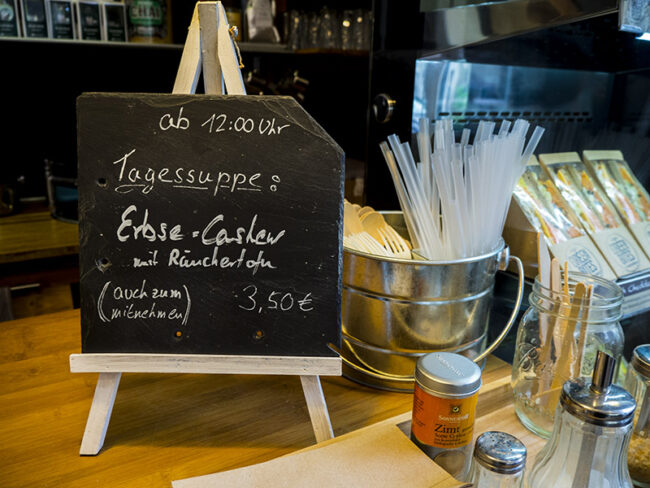 ab 12:00 Uhr
Tagessuppe:
Erbse-Cashew
mit Räuchertofu
(auch zum mitnehmen)
3,50€
CHAI
SONNENTOR
Zimt